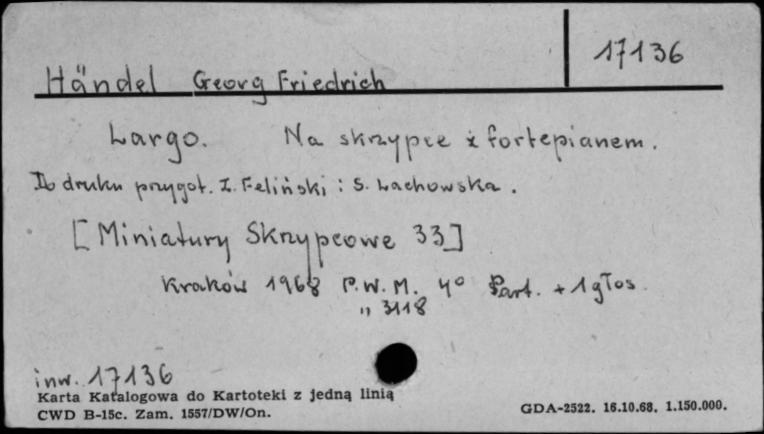 17136
Händel Georg Friedrich
Largo. Na skrzypce z fortepianem.
Do druku przygot. Z. Feliński i S. Lachowska.
[Miniatury Skrzypcowe 33]
Kraków 1968 P.W.M. 4° Part. + 1 głos.
" 3118
inw. 17136
Karta Katalogowa do Kartoteki z jedną linią
CWD B-15c. Zam. 1557/DW/On.
GDA-2522. 16.10.68. 1.150.000.